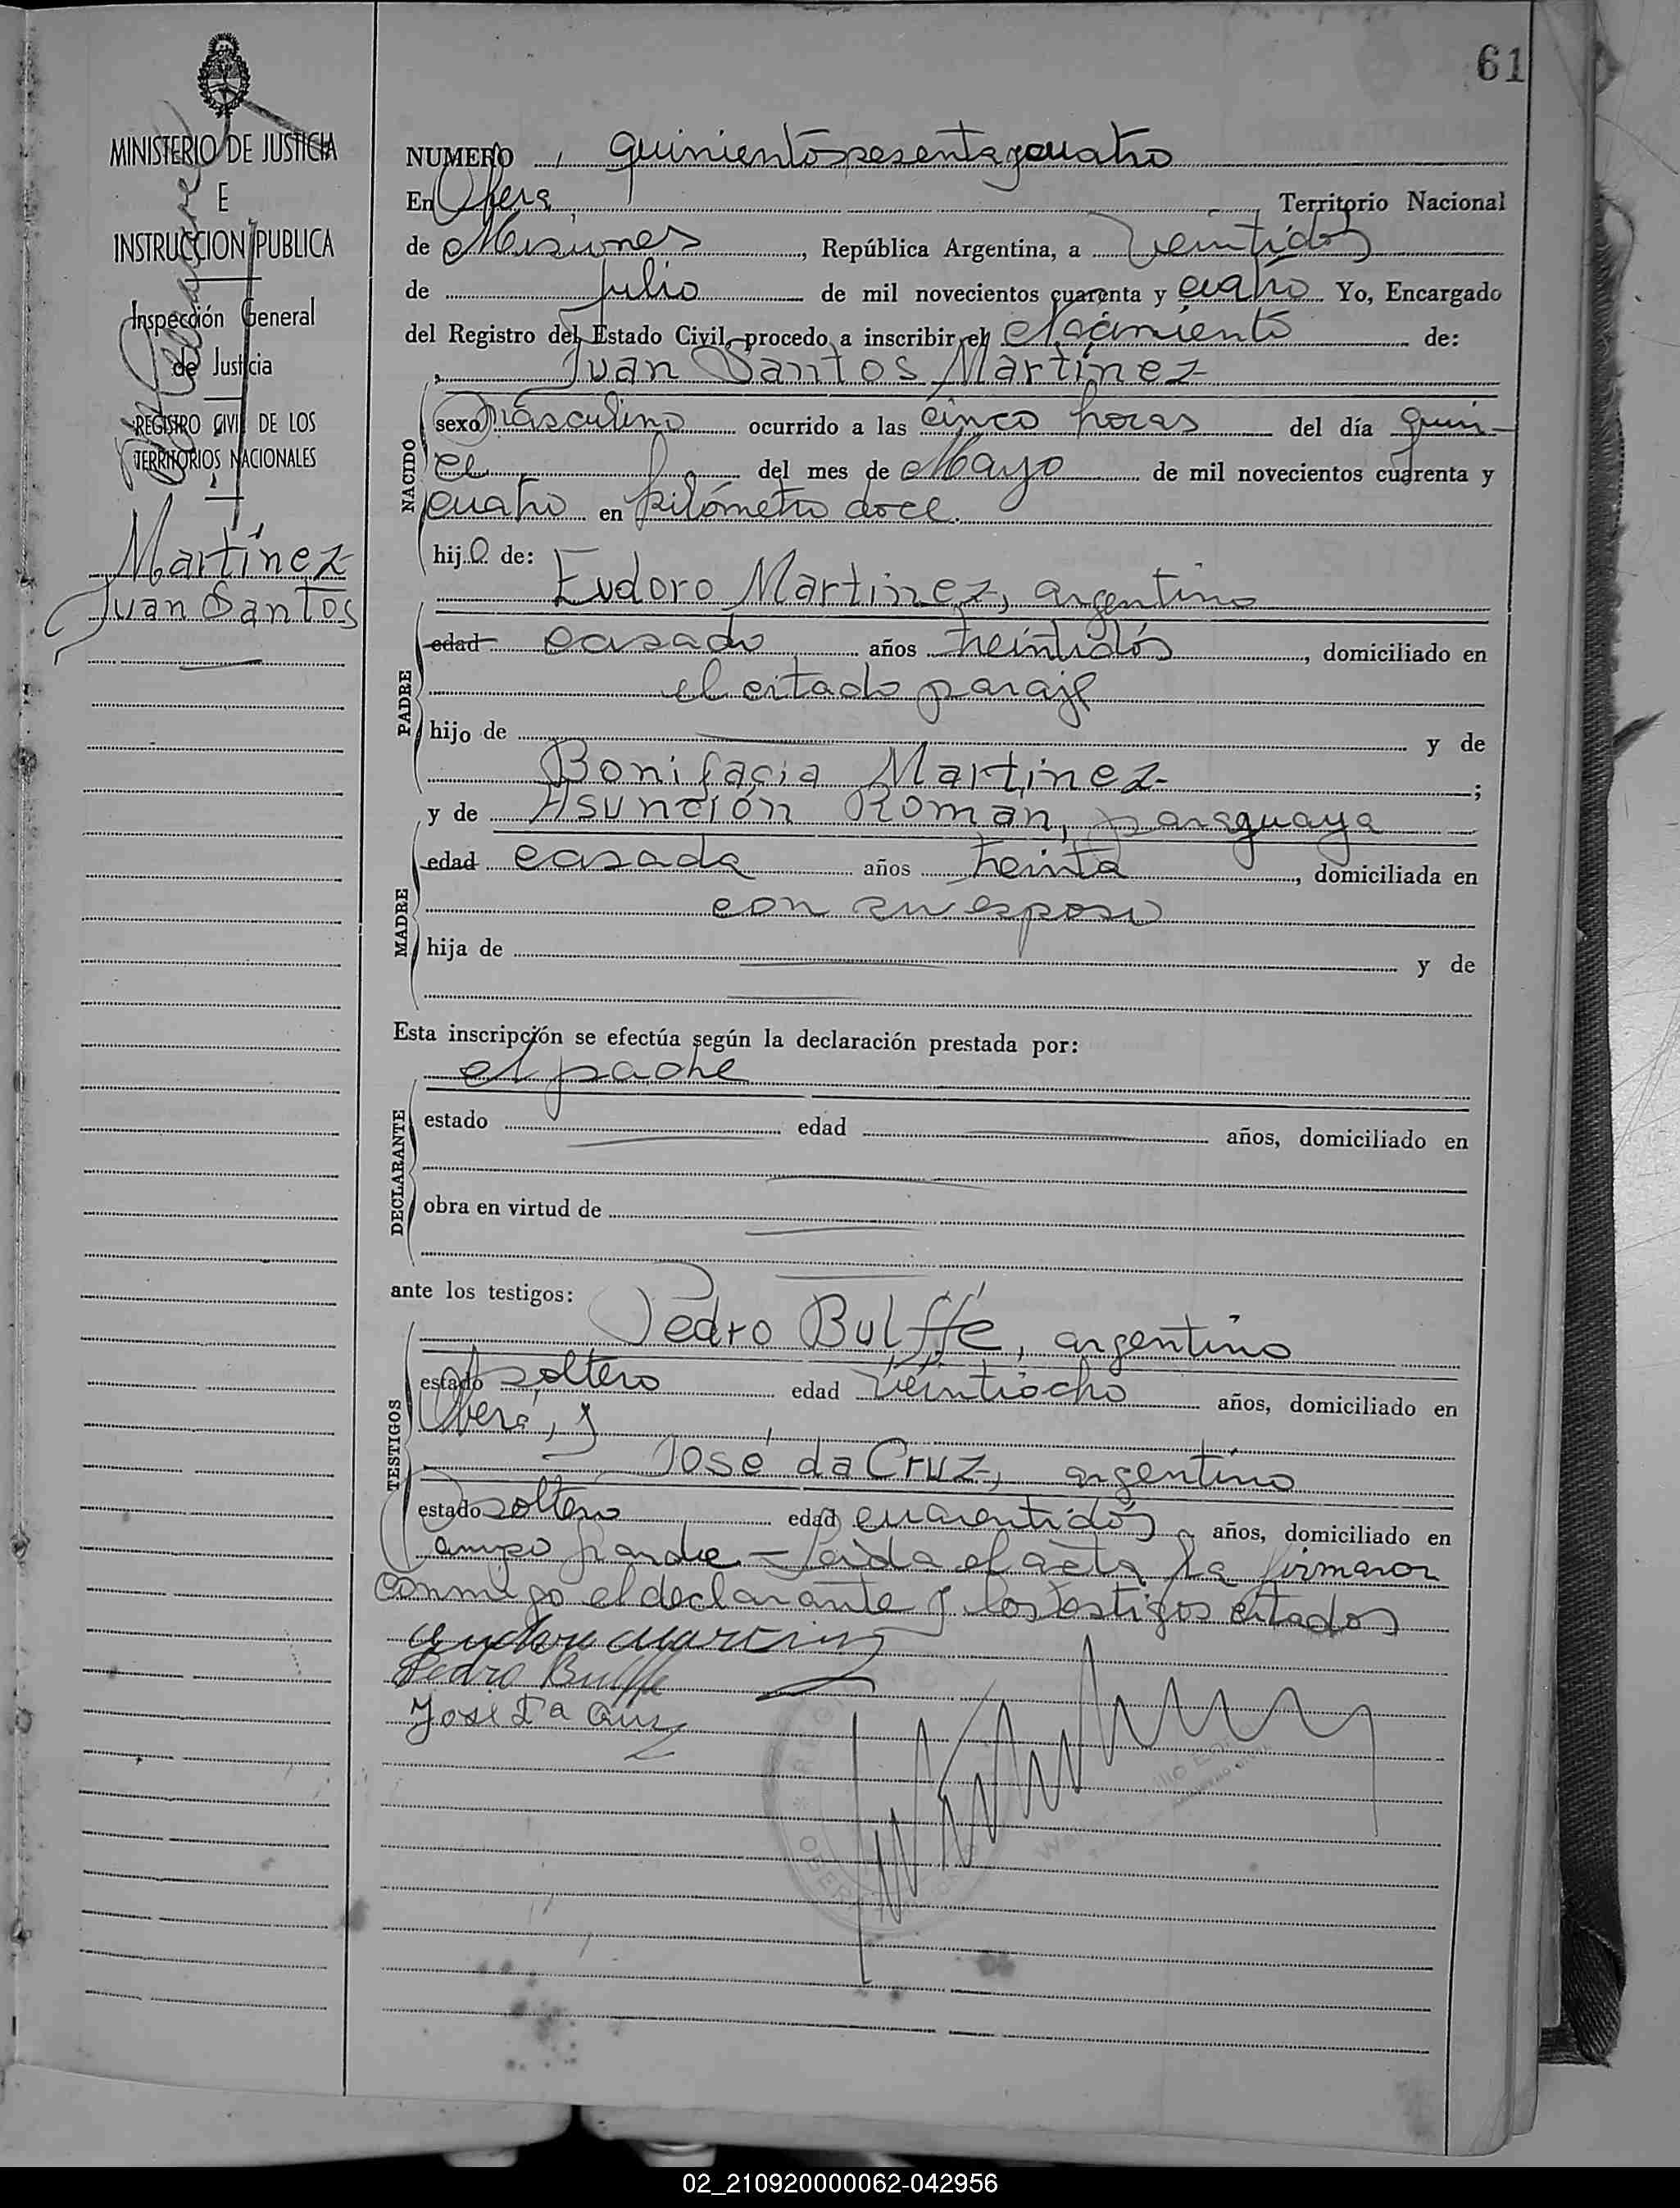 61
MINISTERIO DE JUSTICIA
E
INSTRUCCION PUBLICA
Inspección General
de Justicia
REGISTRO CIVIL DE LOS
TERRITORIOS NACIONALES
Martínez
Juan Santos
NUMERO quinientos sesenta y cuatro
En Oberá, Territorio Nacional
de Misiones, República Argentina, a veintidos
de Julio de mil novecientos cuarenta y cuatro Yo, Encargado
del Registro del Estado Civil, procedo a inscribir el nacimiento de:
Juan Santos Martínez
NACIDO
sexo masculino ocurrido a las cinco horas del día quin-
ce del mes de Mayo de mil novecientos cuarenta y
cuatro en kilómetro doce.
hijo de:
Eudoro Martinez, argentino
PADRE
edad casado años treintidós, domiciliado en
el citado paraje
hijo de y de
Bonifacia Martínez ;
y de Asunción Roman, paraguaya
MADRE
edad casada años treinta, domiciliada en
con su esposo
hija de y de
Esta inscripción se efectúa según la declaración prestada por:
el padre
DECLARANTE
estado edad años, domiciliado en
obra en virtud de
ante los testigos:
Pedro Bulffe, argentino
TESTIGOS
estado soltero edad veintiocho años, domiciliado en
Oberá, y
José da Cruz, argentino
estado soltero edad cuarentidós años, domiciliado en
Campo grande.- Leida el acta la firmaron
conmigo el declarante y los testigos citados
Eudoro Martinez
Pedro Bulffe
José Da Cruz
OBERA
02_210920000062-042956